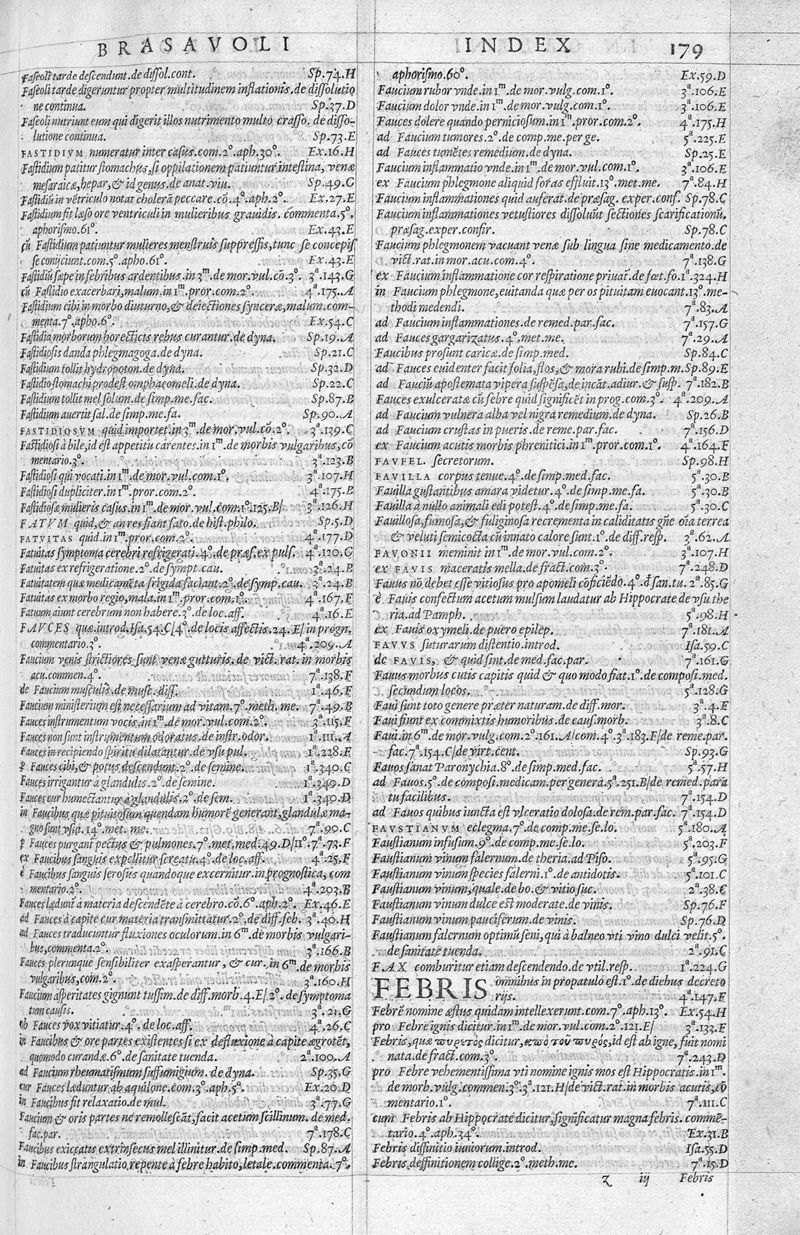 BRASAVOLI
Faseoli tarde descendunt.de dissol.cont. Sp.74.H
Faseoli tarde digeruntur propter multitudinem inflationis.de dissolutio
ne continua. Sp.37.D
Faseoli nutriunt eum qui digerit illos nutrimento multo crasso. de disso-
lutione continua. Sp.73.E
FASTIDIVM numeratur inter casus.com.2°.aph.30°. Ex.16.H
Fastidium patitur stomachus, si oppilationem patiuntur intestina, venæ
mesaraicæ, hepar, & id genus.de anat.viu. Sp.49.G
Fastidiū in vētriculo notat cholerā peccare.cō.4°.aph.2°. Ex.27.E
Fastidium fit læso ore ventriculi in mulieribus grauidis. commenta.5°.
aphorismo.61°. Ex.43.E
cū Fastidium patiuntur mulieres menstruis suppressis, tunc se concepisse
se conijciunt.com.5°.apho.61°. Ex.43.E
Fastidiū sæpe in febribus ardentibus.in 3ᵐ.de mor.vul.cō.3°. 3ª.143.G
cū Fastidio exacerbari, malum.in 1ᵐ.pror.com.2°. 4ª.175.A
Fastidium cibi in morbo diuturno, & deiectiones synceræ, malum.com-
menta.7°.apho.6°. Ex.54.C
Fastidia morborum horecticis rebus curantur.de dyna. Sp.19.A
Fastidiosis danda phlegmagoga.de dyna. Sp.21.C
Fastidium tollit hydropoton.de dyna. Sp.32.D
Fastidio stomachi prodest omphacomeli.de dyna. Sp.22.C
Fastidium tollit mel solum.de simp.me.fac. Sp.87.B
Fastidium auertit sal.de simp.me.fa. Sp.90.A
FASTIDIOSVM quid importet.in 3ᵐ.de mor.vul.cō.2°. 3ª.139.C
Fastidiosi à bile, id est appetitu carentes.in 1ᵐ.de morbis vulgaribus, cō
mentario.3°. 3ª.123.B
Fastidiosi qui vocati.in 1ᵐ.de mor.vul.com.1°. 3ª.107.H
Fastidiosi dupliciter.in 1ᵐ.pror.com.2°. 4ª.175.B
Fastidiosæ mulieris casus.in 1ᵐ.de mor.vul.com.1°.125.B| 3ª.126.H
FATVM quid, & an res fiant fato.de hist.philo. Sp.5.D
FATVITAS quid.in 1ᵐ.pror.com.2°. 4ª.177.D
Fatuitas symptoma cerebri refrigerati.4°.de præs.ex puls. 4ª.120.G
Fatuitas ex refrigeratione.2°.de sympt.cau. 3ª.24.B
Fatuitatem quæ medicamēta frigida faciant.2°.de symp.cau. 3ª.24.B
Fatuitas ex morbo regio, mala.in 1ᵐ.pror.com.1°. 4ª.167.F
Fatuum aiunt cerebrum non habere.3°.de loc.aff. 4ª.16.E
FAVCES quæ.introd.Isa.54.C|4°.de locis affectis.24.E|in progn.
commentario.3°. 4ª.209.A
Faucium venis strictiores sunt venæ gutturis.de vict.rat.in morbis
acu.commen.4°. 7ª.138.F
de Faucium musculis.de musc.diss. 1ª.46.F
Faucium ministerium est necessarium ad vitam.7°.meth.me. 7ª.49.B
Fauces instrumentum vocis.in 1ᵐ.de mor.vul.com.2°. 3ª.115.F
Fauces non sunt instrumentum odoratus.de instr.odor. 1ª.111.A
Fauces in recipiendo spiritu dilatantur.de vsu pul. 1ª.228.F
p Fauces cibi, & potus descendunt.2°.de semine. 1ª.340.C
Fauces irrigantur a glandulis.2°.de semine. 1ª.349.D
Fauces cur humectantur a glandulis.2°.de sem. 1ª.340.D
in Faucibus quæ pituitosum quendam humorē generant, glandulæ ma-
gno sunt vsui.14°.met.me. 7ª.90.C
p Fauces purgant pectus & pulmones.7°.met.med.49.D|11°.7ª.73.F
ex Faucibus sanguis expellitur screatu.4°.de loc.aff. 4ª.25.F
è Faucibus sanguis serosus quandoque excernitur.in prognostica, com
mentario.2°. 4ª.203.B
Fauces lædunt à materia descendēte à cerebro.cō.6°.aph.2°. Ex.46.E
ad Fauces à capite cur materia transmittatur.2°.de diff.feb. 3ª.40.H
ad Fauces traducuntur fluxiones oculorum.in 6ᵐ.de morbis vulgari-
bus, commenta.2°. 3ª.166.B
Fauces plerunque sensibiliter exasperantur, & cur.in 6ᵐ.de morbis
vulgaribus, com.2°. 3ª.160.H
Faucium asperitates gignunt tussim.de diff.morb.4.E|2°.de symptoma
tum causis. 3ª.21.G
ob Fauces vox vitiatur.4°.de loc.aff. 4ª.26.C
in Faucibus & ore partes existentes si ex defluxione à capite ægrotēt,
quomodo curandæ.6°.de sanitate tuenda. 2ª.100.A
ad Faucium rheumatismum suffumigium.de dyna. Sp.35.G
cur Fauces lædantur ab aquilone.com.3°.aph.5°. Ex.20.D
in Faucibus fit relaxatio.de mul. 3ª.77.G
Faucium & oris partes ne remollescāt, facit acetum scillinum.de med.
fac.par. 7ª.178.C
Faucibus exiccatis extrinsecus mel illinitur.de simp.med. Sp.87.A
in Faucibus strangulatio, repente à febre habito, letale.commenta.7°.
INDEX 179
aphorismo.60°. Ex.59.D
Faucium rubor vnde.in 1ᵐ.de mor.vulg.com.1°. 3ª.106.E
Faucium dolor vnde.in 1ᵐ.de mor.vulg.com.1°. 3ª.106.E
Fauces dolere quando perniciosum.in 1ᵐ.pror.com.2°. 4ª.175.H
ad Faucium tumores.2°.de comp.me.per ge. 5ª.225.E
ad Faucium tumētes remedium.de dyna. Sp.25.E
Faucium inflammatio vnde.in 1ᵐ.de mor.vul.com.1°. 3ª.106.E
ex Faucium phlegmone aliquid foras effluit.13°.met.me. 7ª.84.H
Faucium inflammationes quid auferat.de præsag.exper.conf. Sp.78.C
Faucium inflammationes vetustiores dissoluūt sectiones scarificationū,
præsag.exper.confir. Sp.78.C
Faucium phlegmonem vacuant venæ sub lingua sine medicamento.de
vict.rat.in mor.acu.com.4°. 7ª.138.G
ex Faucium inflammatione cor respiratione priuat̄.de fœt.fo.1ª.324.H
in Faucium phlegmone, euitanda quæ per os pituitam euocant.13°.me-
thodi medendi. 7ª.83.A
ad Faucium inflammationes.de remed.par.fac. 7ª.157.G
ad Fauces gargarizatus.4°.met.me. 7ª.29.A
Faucibus prosunt caricæ.de simp.med. Sp.84.C
ad Fauces euidenter facit folia, flos, & mora rubi.de simp.m. Sp.89.E
ad Fauciū apostemata vipera suspēsa, de incāt.adiur.& susp. 7ª.182.B
Fauces exulceratæ cū febre quid significēt in prog.com.3°. 4ª.209.A
ad Faucium vulnera alba vel nigra remedium.de dyna. Sp.26.B
ad Faucium crustas in pueris.de reme.par.fac. 7ª.156.D
ex Faucium acutis morbis phrenitici.in 1ᵐ.pror.com.1°. 4ª.164.F
FAVFEL secretorum. Sp.98.H
FAVILLA corpus tenue.4°.de simp.med.fac. 5ª.30.B
Fauilla gustantibus amara videtur.4°.de simp.me.fa. 5ª.30.B
Fauilla à nullo animali edi potest.4°.de simp.me.fa. 5ª.30.C
Fauillosa, fumosa, & fuliginosa recrementa in caliditatis gñe oīa terrea
& veluti semicocta cū innato calore sunt.1°.de diff.resp. 3ª.62.A
FAVONII meminit in 1ᵐ.de mor.vul.com.2°. 3ª.107.H
ex FAVIS maceratis mella.de fract.com.3°. 7ª.248.D
Fauus nō debet esse vitiosus pro apomeli cōficiēdo.4°.d san.tu. 2ª.85.G
è Fauis confectum acetum mulsum laudatur ab Hippocrate de vsu the
ria.ad Pamph. 5ª.98.H
ex Fauis oxymeli.de puero epilep. 7ª.181.A
FAVVS suturarum distentio.introd. Isa.50.C
de FAVIS, & quid sint.de med.fac.par. 7ª.161.G
Fauus morbus cutis capitis quid & quo modo fiat.1°.de composi.med.
secundum locos. 5ª.128.G
Faui sunt toto genere præter naturam.de diff.mor. 3ª.4.E
Faui fiunt ex commixtis humoribus.de caus.morb. 3ª.8.C
Faui.in 6ᵐ.de mor.vulg.com.2°.161.A|com.4°.3ª.183.F|de reme.par.
fac.7ª.154.C|de virt.cent. Sp.93.G
Fauos sanat Paronychia.8°.de simp.med.fac. 5ª.57.H
ad Fauos.5°.de composi.medicam.per genera.5ª.251.B|de remed.para
tu facilibus. 7ª.154.D
ad Fauos quibus iuncta est vlceratio dolosa.de rem.par.fac. 7ª.154.D
FAVSTIANVM eclegma.7°.de comp.me.se.lo. 5ª.180.A
Faustianum infusum.9°.de comp.me.se.lo. 5ª.203.F
Faustianum vinum falernum.de theria.ad Piso. 5ª.95.G
Faustianum vinum species falerni.1°.de antidotis. 5ª.101.C
Faustianum vinum, quale.de bo.& vitio suc. 2ª.38.C
Faustianum vinum dulce est moderate.de vinis. Sp.76.F
Faustianum vinum pauciferum.de vinis. Sp.76.D
Faustianum falernum optimū seni, qui à balneo vti vino dulci velit.5°.
de sanitate tuenda. 2ª.91.C
FAX comburitur etiam descendendo.de vtil.resp. 1ª.224.G
FEBRIS omnibus in propatulo est.1°.de diebus decreto
rijs. 4ª.147.F
Febrē nomine æstus quidam intellexerunt.com.7°.aph.13°. Ex.54.H
pro Febre ignis dicitur.in 1ᵐ.de mor.vul.com.2°.121.E| 3ª.133.F
Febris, quæ πυρετὸς dicitur, ἀπὸ τοῦ πυρὸς, id est ab igne, fuit nomi
nata.de fract.com.3°. 7ª.243.D
pro Febre vehementissima vti nomine ignis mos est Hippocratis.in 1ᵐ.
de morb.vulg.commen.3°.3ª.121.H|de vict.rat.in morbis acutis, cō
mentario.1°. 7ª.111.C
cum Febris ab Hippocrate dicitur, significatur magna febris.commē-
tario.4°.aph.34°. Ex.31.B
Febris diffinitio iuniorum.introd. Isa.55.D
Febris deffinitionem collige.2°.meth.me. 7ª.15.D
Z iij Febris